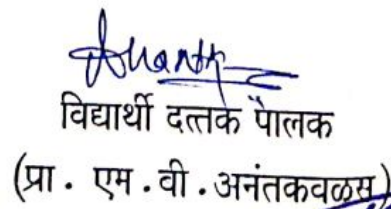 विद्यार्थी दत्तक पालक
(प्रा. एम.वी.अनंतकवळस)